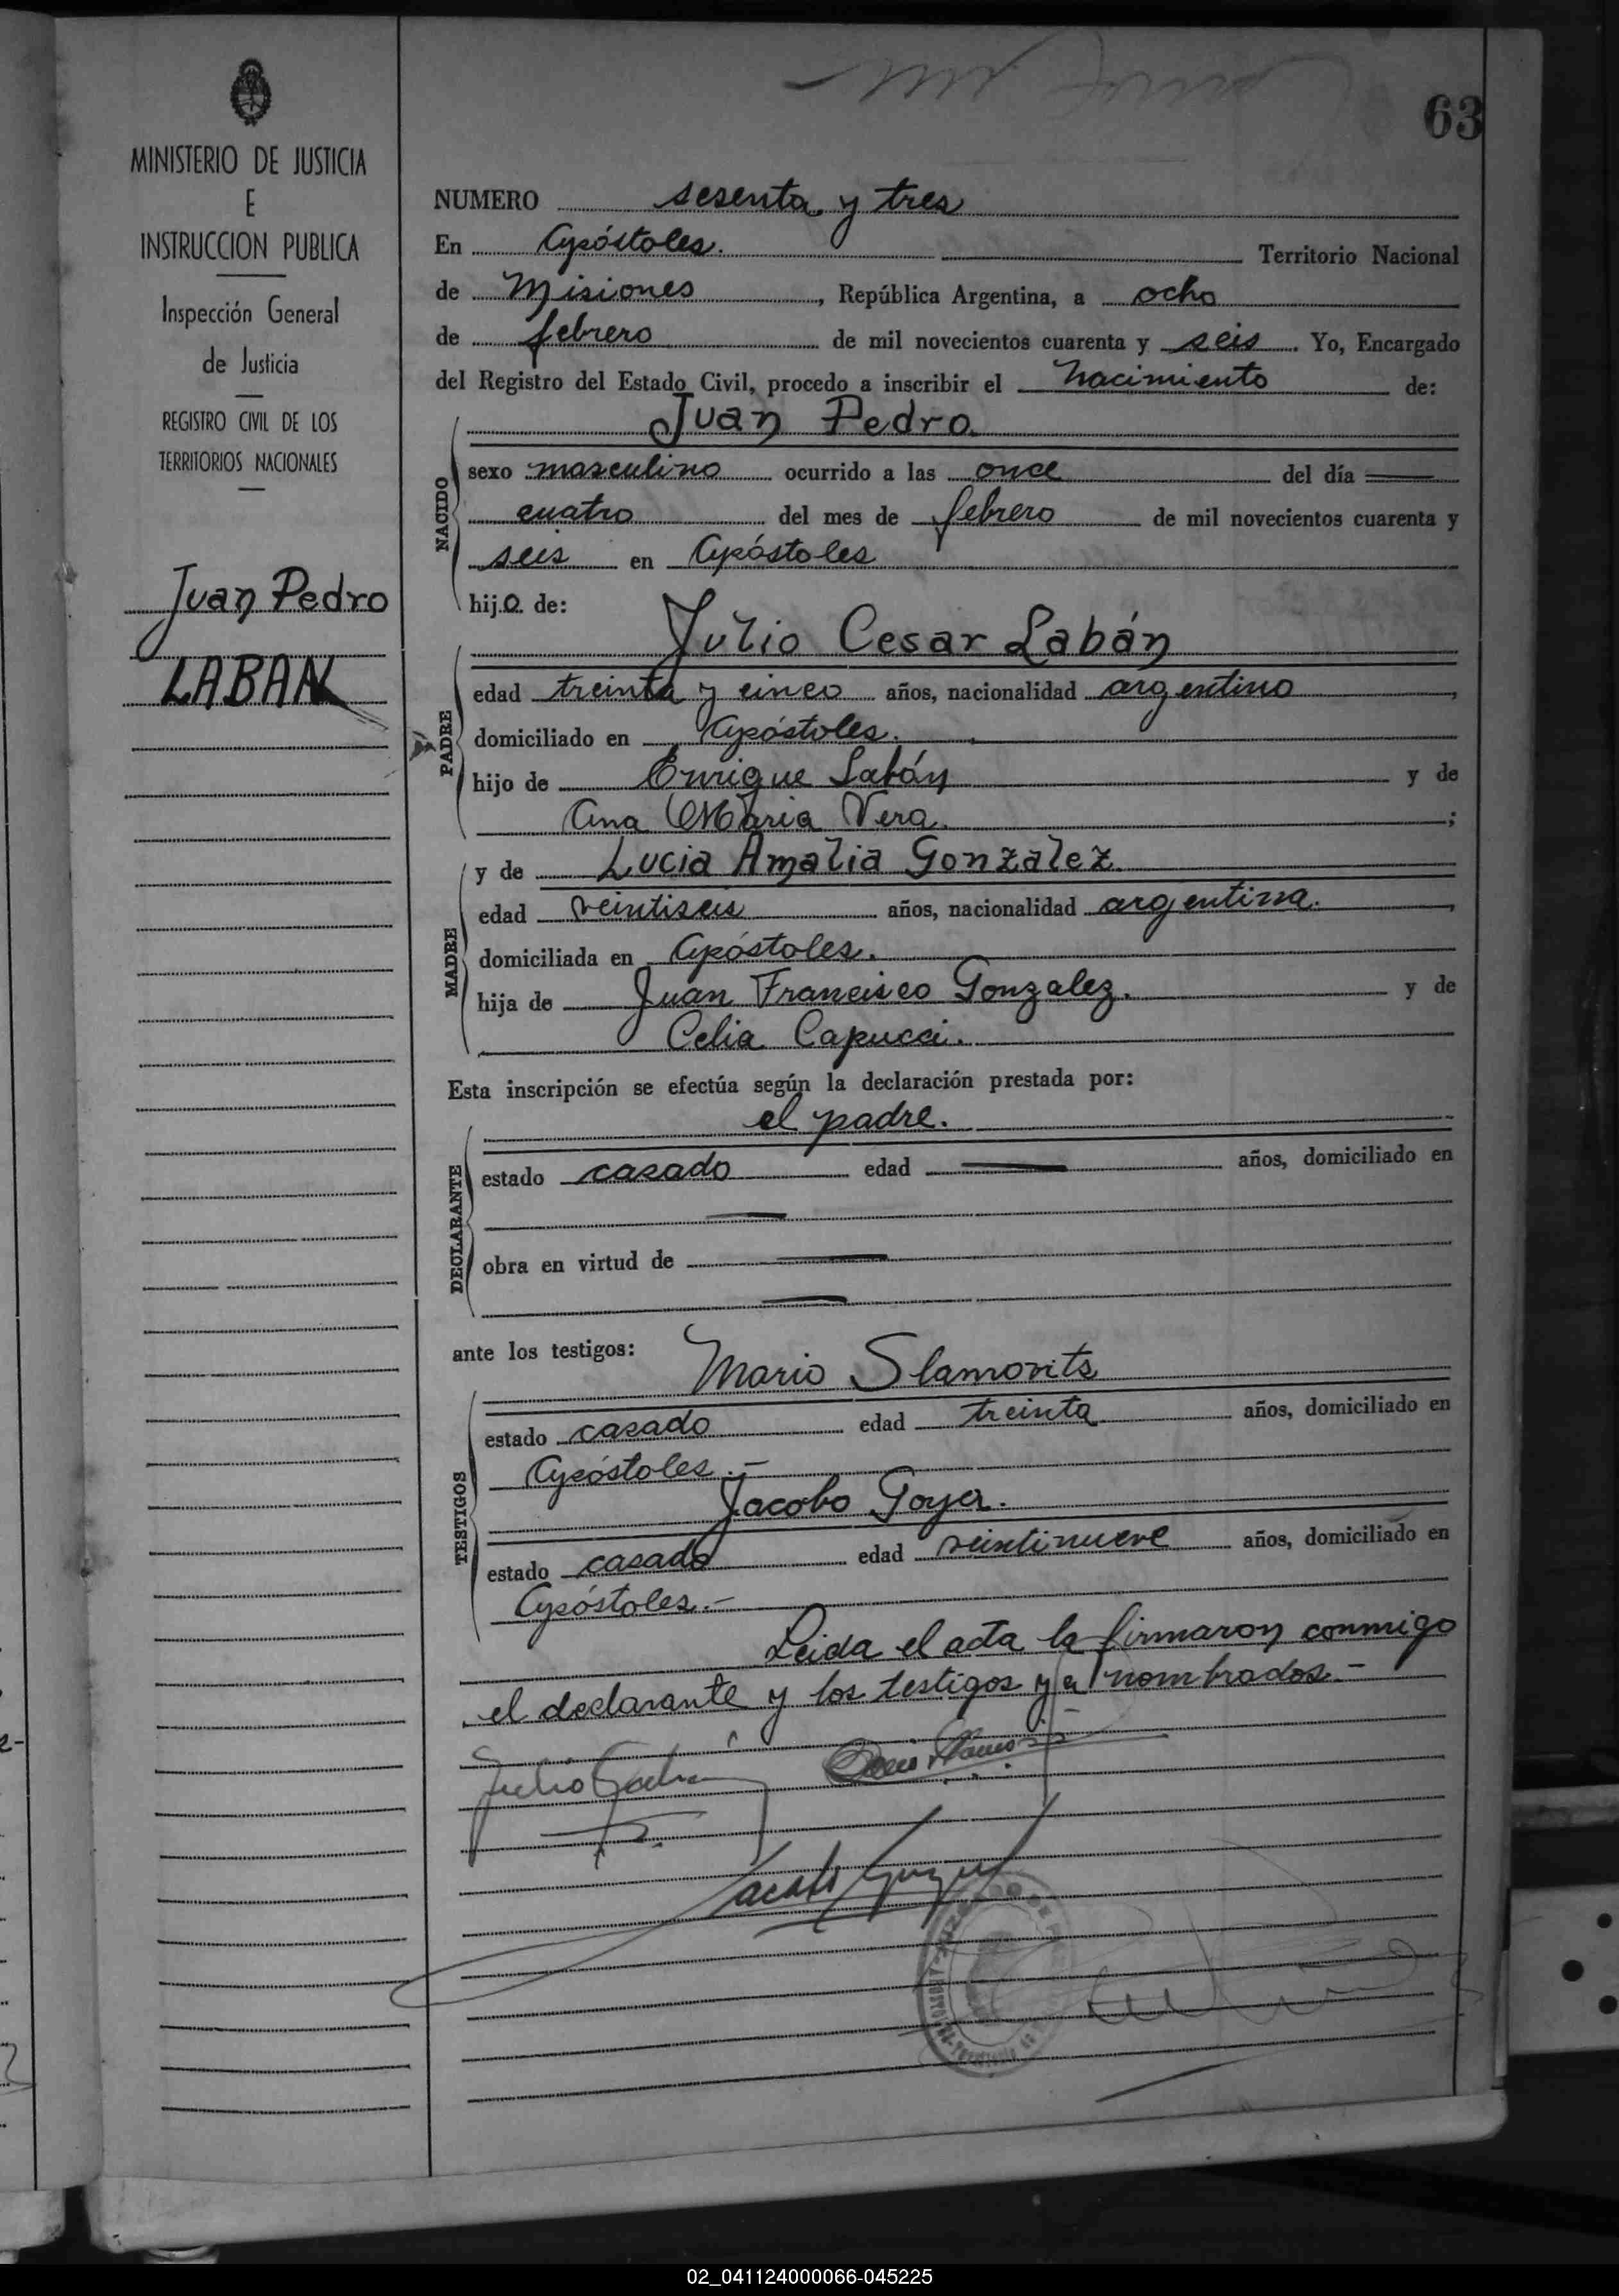 63
MINISTERIO DE JUSTICIA
E
INSTRUCCION PUBLICA
Inspección General
de Justicia
REGISTRO CIVIL DE LOS
TERRITORIOS NACIONALES
Juan Pedro
LABAN
NUMERO sesenta y tres
En Apóstoles. Territorio Nacional
de Misiones, República Argentina, a ocho
de febrero de mil novecientos cuarenta y seis. Yo, Encargado
del Registro del Estado Civil, procedo a inscribir el nacimiento de:
Juan Pedro.
NACIDO
sexo masculino ocurrido a las once del día
cuatro del mes de febrero de mil novecientos cuarenta y
seis en Apóstoles
hijo de:
Julio Cesar Labán
PADRE
edad treinta y cinco años, nacionalidad argentino,
domiciliado en Apóstoles.
hijo de Enrique Labán y de
Ana Maria Vera.;
y de Lucia Amalia Gonzalez.
MADRE
edad veintiseis años, nacionalidad argentina.,
domiciliada en Apóstoles.
hija de Juan Francisco Gonzalez. y de
Celia Capucci.
Esta inscripción se efectúa según la declaración prestada por:
el padre.
DECLARANTE
estado casado edad años, domiciliado en
obra en virtud de
ante los testigos:
Mario Slamovits
TESTIGOS
estado casado edad treinta años, domiciliado en
Apóstoles.-
Jacobo Goyer.
estado casado edad veintinueve años, domiciliado en
Apóstoles.-
Leida el acta la firmaron conmigo
el declarante y los testigos ya nombrados.-
02_041124000066-045225